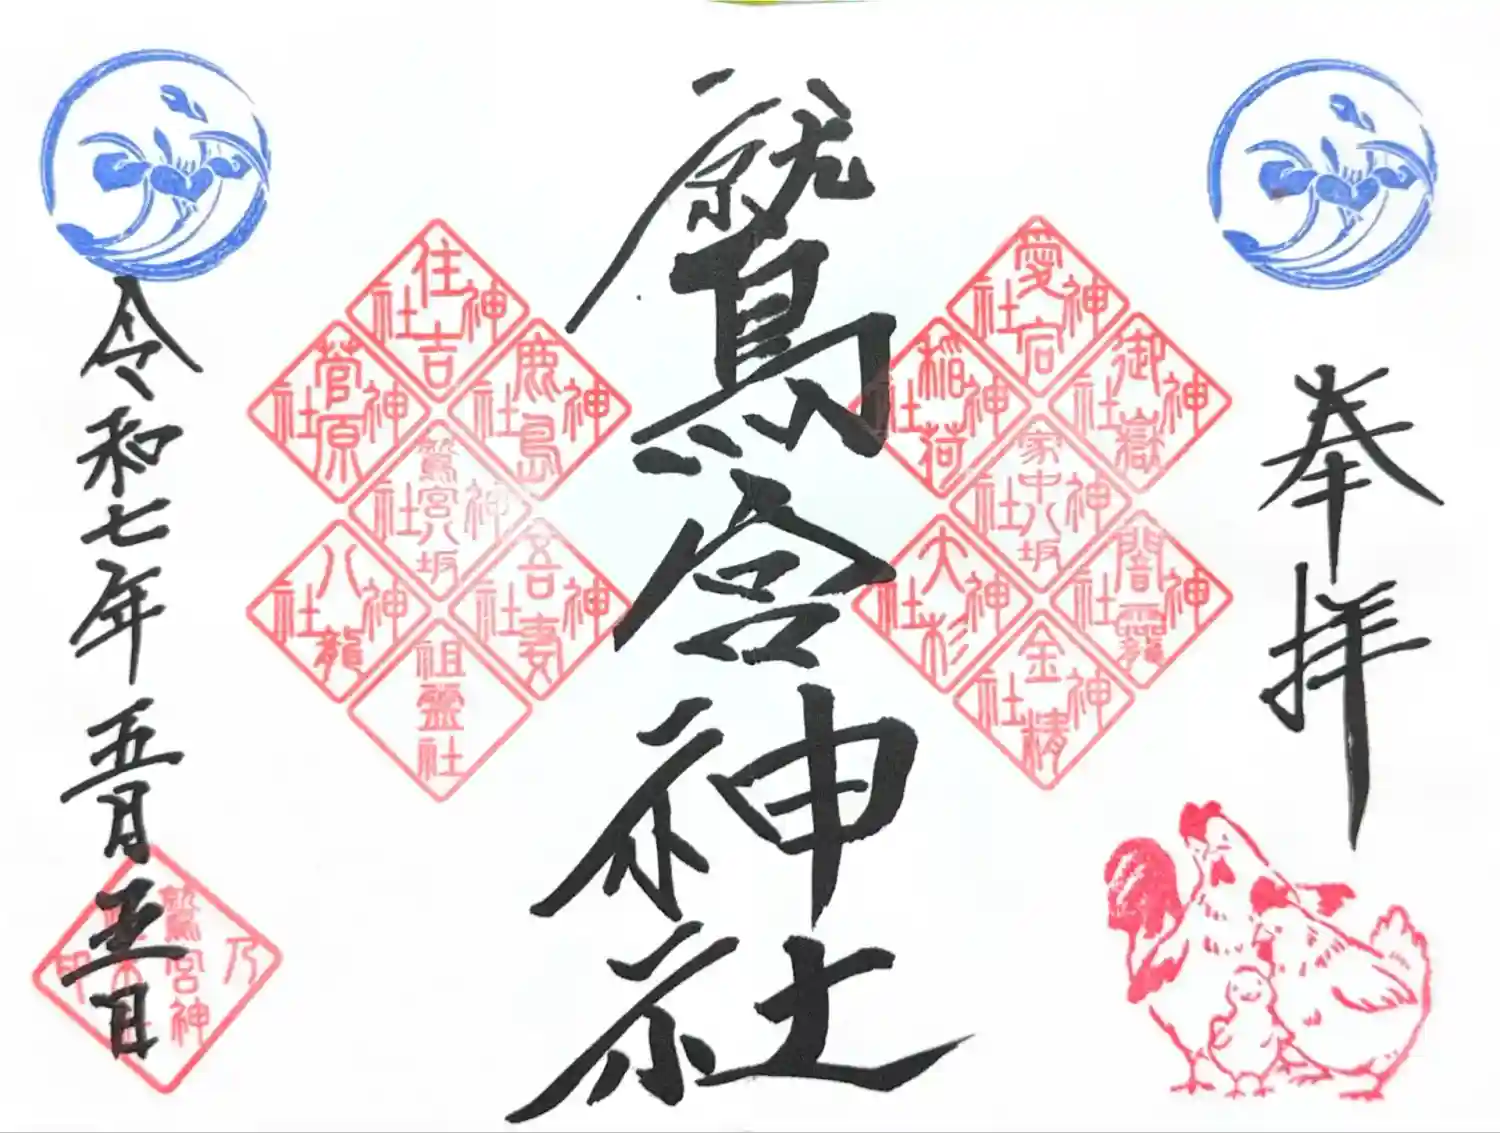 奉拝
愛宕神社
御嶽神社
稲荷神社
家中八坂神社
闇龗神社
大杉神社
金精神社
鷲宮神社
住吉神社
鹿島神社
菅原神社
鷲宮八坂神社
吾妻神社
八龍神社
祖霊社
令和七年五月五日
乃
鷲宮神
印